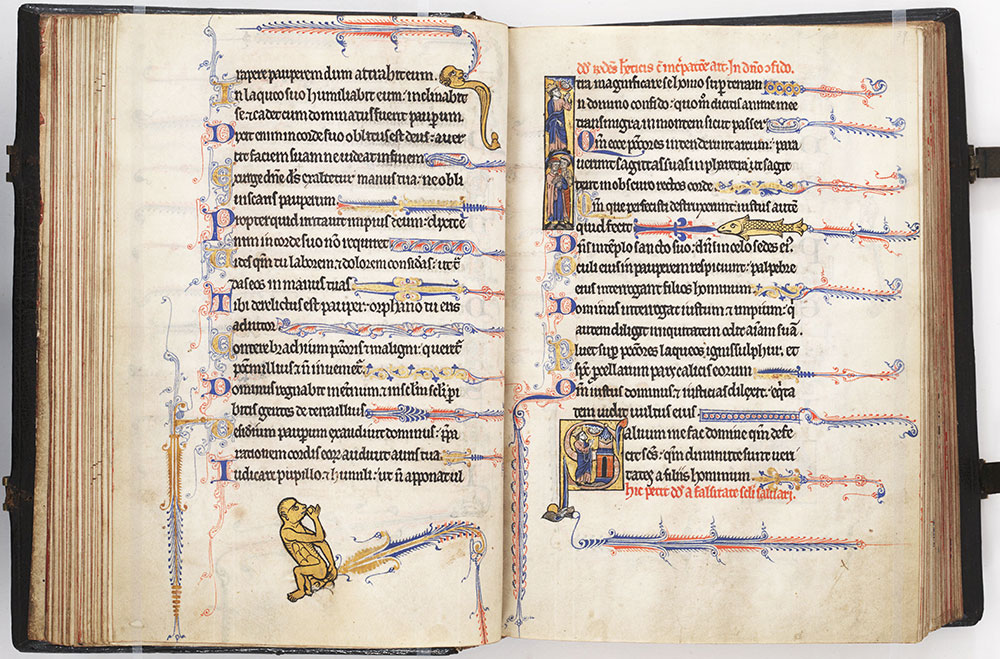 rapere pauperem dum attrahit eum.
In laqueo suo humiliabit eum: inclinabit
se & cadet cum dominatus fuerit paupum.
Dixit enim in corde suo oblitus est deus: auer
tit faciem suam ne uideat in finem
Exurge dñe ds exaltetur manus tua: ne obli
uiscaris pauperum
Propter quid irritauit impius deum: dixit e
nim in corde suo nõ requiret
Uides qm tu laborem & dolorem consideras: ut
das eos in manus tuas
Tibi derelictus est pauper: orphano tu eris
adiutor
Contere brachium pctoris & maligni: queret
pctm illius & ñ inuenietur
Dominus regnabit in eternum & in sclm scli: peri
bitis gentes de terra illius
Desiderium pauperum exaudiuit dominus: ppa
rationem cordis eorum audiuit auris tua
Iudicare pupillo & humili: ut ñ apponat ul
In dño cfido.
tra magnificare se homo super terram
In domino confido: quom dicitis anime mee
transmigra in montem sicut passer
Qm ecce pctores intenderunt arcum: para
uerunt sagittas suas in pharetra ut sagit
tent in obscuro rectos corde
Qm que perfecisti destruxerunt: iustus autē
quid fecit
Dñs in templo sancto suo: dñs in celo sedes ei
Oculi eius in pauperem respiciunt: palpebre
eius interrogant filios hominum
Dominus interrogat iustum & impium: q
autem diligit iniquitatem odit aiam suā
Pluet sup pctores laqueos: ignis sulphur et
sps pcellarum pars calicis eorum
Qm iustus dominus & iusticias dilexit: equita
tem uidit uultus eius
Saluum me fac domine qm defe
cit scs: qm diminute sunt ueri
tates a filiis hominum
hic petit a falsitate seculi saluari.